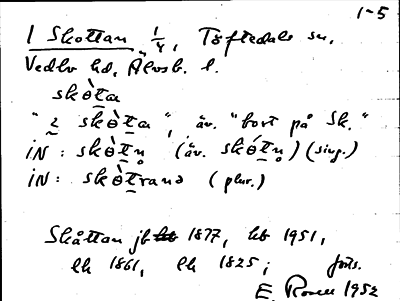 1-5
1 Skottan 1/4, Töftedals sn.
Vedbo hd. Älvsb. l.
skò̱ta
"i skò̱ta", äv. "bort på Sk."
iN: skò̱tn̥ (äv. skó̱tn̥) (sing.)
iN: skò̱trana (plur.)
Skåttan jb 1877, hb 1951,
lk 1861, lk 1825; forts.
E. Rosell 1952